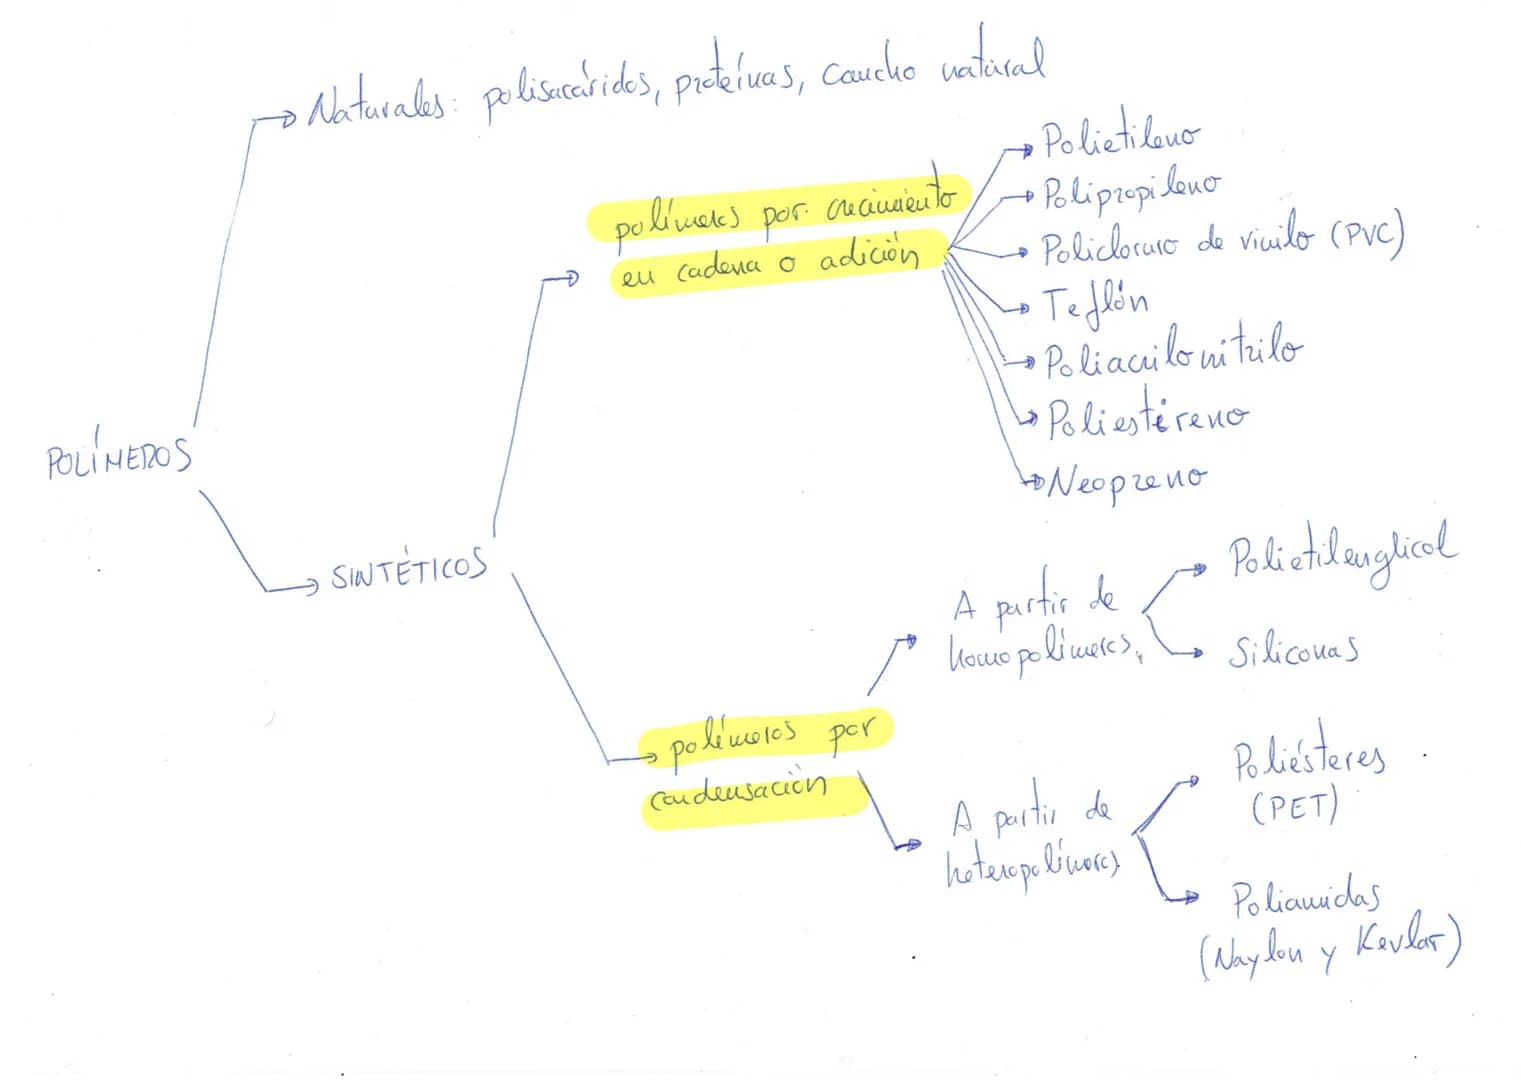 Naturales: polisacáridos, proteínas, caucho natural
polímeros por crecimiento
en cadena o adición
Polietileno
Polipropileno
Policloruro de vinilo (PVC)
Teflón
Poliacrilonitrilo
Poliestireno
Neopreno
POLÍMEROS
SINTÉTICOS
polímeros por
condensación
A partir de
homopolímeros
Polietilenglicol
Siliconas
A partir de
heteropolímeros
Poliésteres
(PET)
Poliamidas
(Naylon y Kevlar)